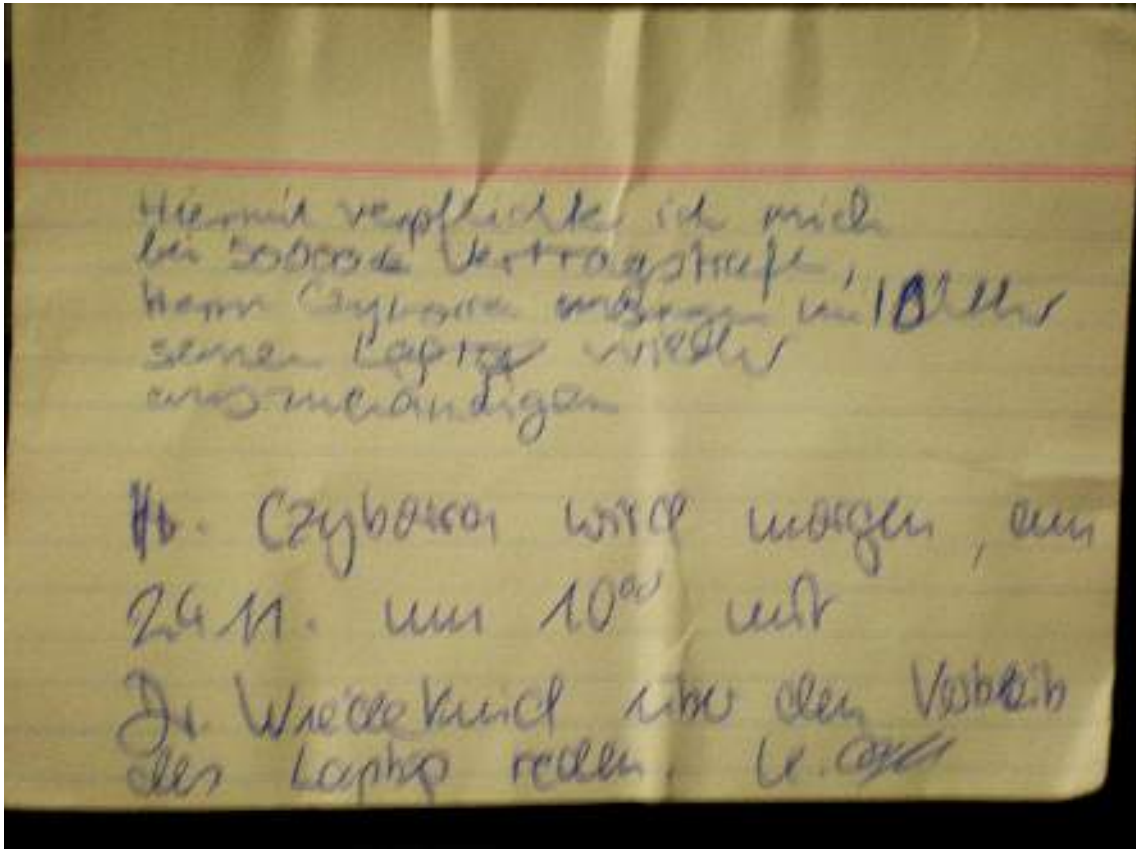 Hiermit verpflichte ich mich
bei 50000 Vertragstrafe,
Herrn Czyborra morgen um 10 Uhr
seinen Laptop wieder
auszuhändigen
Hr. Czyborra wird morgen, am
24.11. um 10⁰⁰ mit
Dr. Wiedekind über den Verbleib
des Laptop reden.